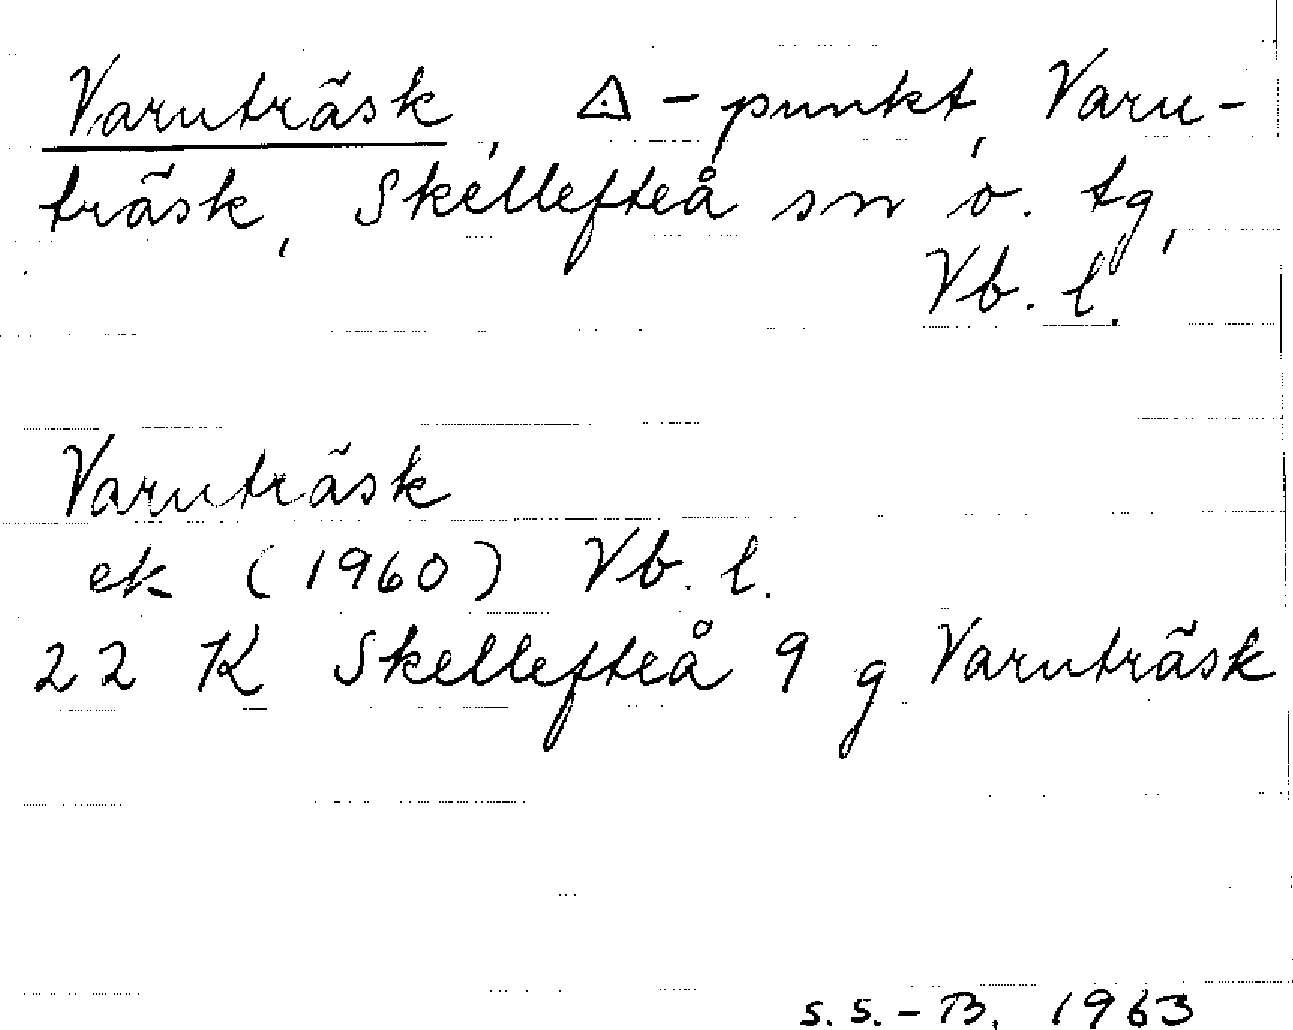 Varuträsk, △-punkt, Varu-
träsk, Skellefteå sn o. tg,
Vb. l.
Varuträsk
ek (1960) Vb. l.
22 K Skellefteå 9 g Varuträsk
S. S.-B. 1963